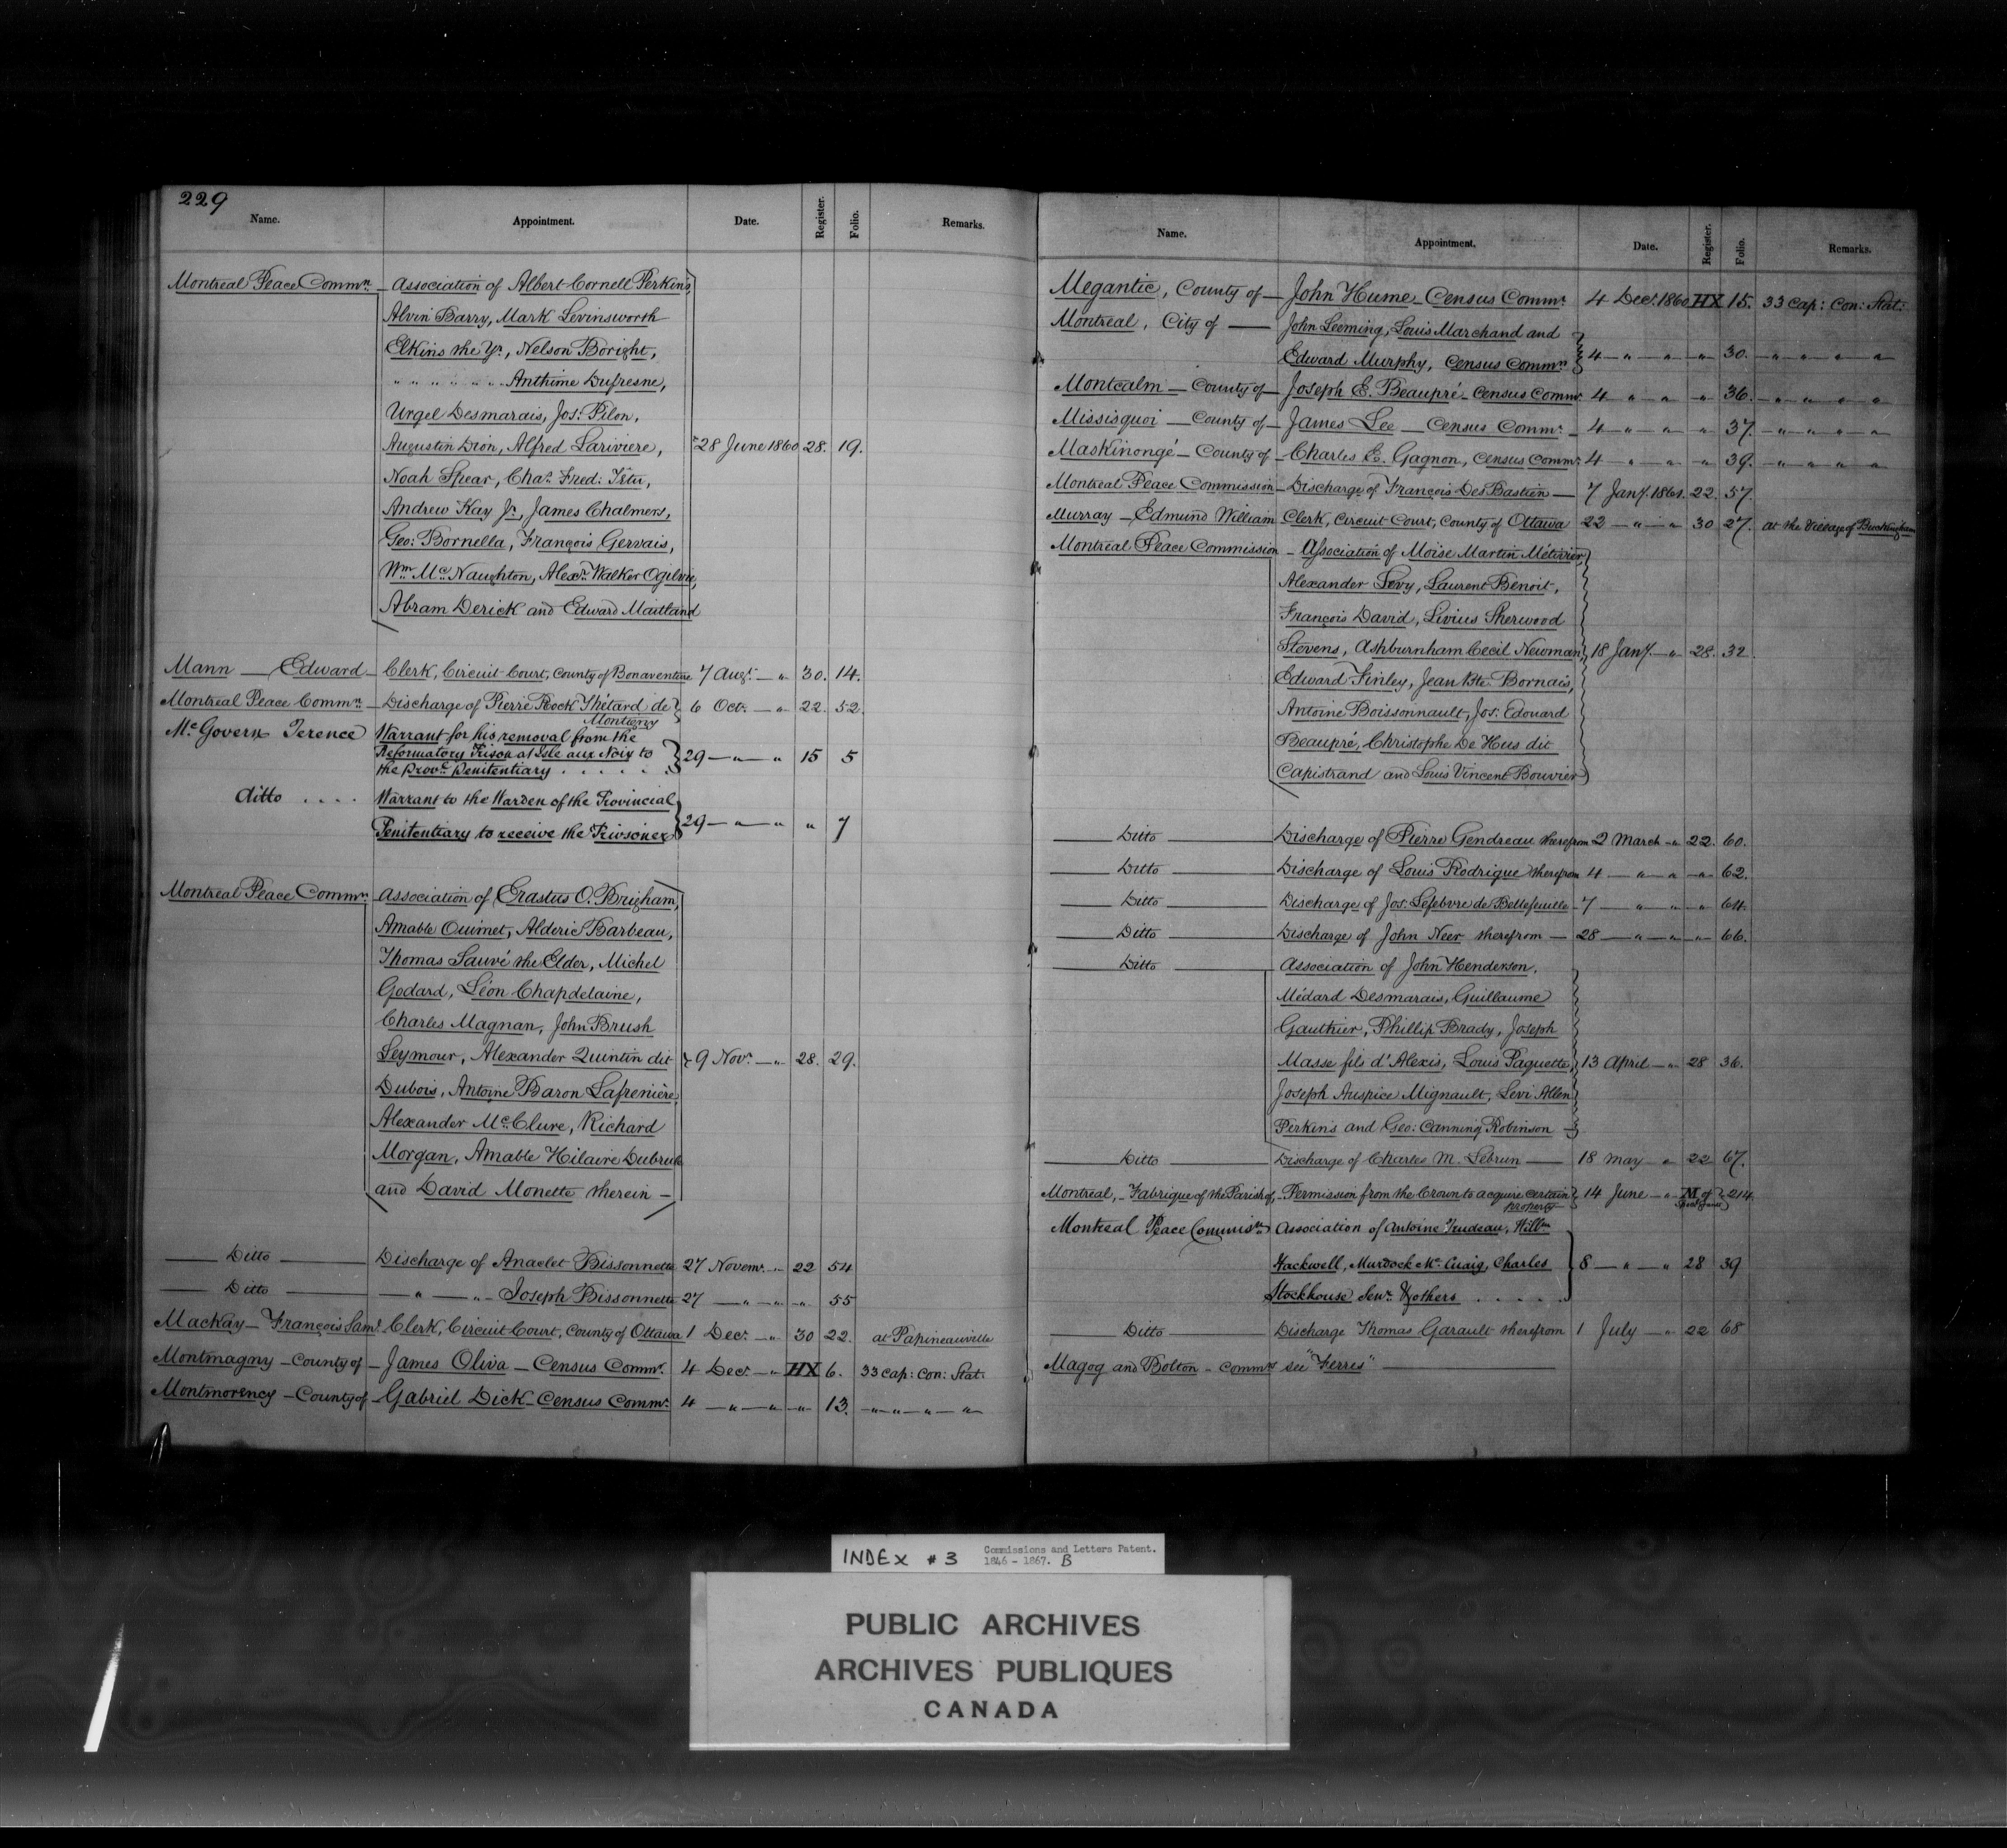 229
Name. Appointment. Date. Register. Folio. Remarks.
Montreal Peace Commn. Association of Albert Cornell Perkins,
Alvin Barry, Mark Levinsworth
Elkins the Yr., Nelson Boright,
" " " " " " " Anthime Dufresne,
Urgel Desmarais, Jos: Pilon,
Augustin Dion, Alfred Lariviere, 28 June 1860 28. 19.
Noah Spear, Chas. Fred:
Andrew Kay Jr., James Chalmers,
Geo: Bornella, François Gervais,
Wm. McNaughton, Alexr. Walker Ogilvie,
Abram Derick and Edward Maitland
Mann — Edward — Clerk, Circuit Court, County of Bonaventure 7 Augt. — " 30. 14.
Montreal Peace Commn. — Discharge of Pierre Rock Thétard de 6 Oct. — " 22. 52.
Montigny
McGovern Terence Warrant for his removal from the
Reformatory Prison at Isle aux Noix to 29 — " — " 15 5
the Provl. Penitentiary . . . . . .
ditto . . . . Warrant to the Warden of the Provincial
Penitentiary to receive the Prisoner 29 — " — " " 7
Montreal Peace Commn. Association of Erastus O. Brigham,
Amable Ouimet, Alderic Barbeau,
Thomas Sauvé the Elder, Michel
Godard, Léon Chapdelaine,
Charles Magnan, John Brush
Seymour, Alexander Quintin dit 9 Novr. — " 28. 29.
Dubois, Antoine Baron Lafrenière,
Alexander McClure, Richard
Morgan, Amable Hilaire Dubruc
and David Monette therein —
— Ditto — Discharge of Anaclet Bissonnette 27 Novemr. — " 22 54
— Ditto — — " — " Joseph Bissonnette 27 — " — " " 55
Mackay — François Saml. Clerk, Circuit Court, County of Ottawa 1 Decr. — " 30 22. at Papineauville
Montmagny — County of — James Oliva — Census Commr. 4 Decr. — " HX 6. 33 Cap: Con: Stat:
Montmorency — County of — Gabriel Dick — Census Commr. 4 — " — " — " — 13. — " — " — " — "
Name. Appointment. Date. Register. Folio. Remarks.
Megantic, County of — John Hume — Census Commr. 4 Decr. 1860 HX 15. 33 Cap: Con: Stat:
Montreal, City of — John Leeming, Louis Marchand and
Edward Murphy, Census Commrs. 4 — " — " — " 30. — " — " — " — "
Montcalm — County of — Joseph E. Beaupré — Census Commr. 4 — " — " — " 36. — " — " — " — "
Missisquoi — County of — James Lee — Census Commr. — 4 — " — " — " 37. — " — " — " — "
Maskinongé — County of — Charles E. Gagnon, Census Commr. 4 — " — " — " 39. — " — " — " — "
Montreal Peace Commission — Discharge of François Des Bastien — 7 Jany. 1861. 22. 57.
Murray — Edmund William Clerk, Circuit Court, County of Ottawa 22 — " — " 30 27. at the Village of Buckingham
Montreal Peace Commission — Association of Moïse Martin Métivier,
Alexander Levy, Laurent Benoit,
François David, Livius Sherwood
Stevens, Ashburnham Cecil Newman, 18 Jany. — " 28. 32.
Edward Finley, Jean Bte. Bornais,
Antoine Boissonnault, Jos. Edouard
Beaupré, Christophe De Hus dit
Capistrand and Louis Vincent Bouvier
— Ditto — Discharge of Pierre Gendreau therefrom 2 March — " 22. 60.
— Ditto — Discharge of Louis Rodrigue therefrom 4 — " — " — " 62.
— Ditto — Discharge of Jos. Lefebvre de Bellefeuille — 7 — " — " — " 64.
— Ditto — Discharge of John Neer therefrom — 28 — " — " — " 66.
— Ditto — Association of John Henderson,
Médard Desmarais, Guillaume
Gauthier, Phillip Brady, Joseph
Masse fils d'Alexis, Louis Paquette, 13 April — " 28 36.
Joseph Auspice Mignault, Levi Allen
Perkins and Geo: Canning Robinson —
— Ditto — Discharge of Charles M. Lebrun — 18 May — " 22 67.
Montreal, — Fabrique of the Parish of, — Permission from the Crown to acquire certain 14 June — " M of 214
property
Montreal Peace Commissn. Association of Antoine Trudeau, Willm.
Hackwell, Murdock McCuaig, Charles 8 — " — " 28 39
Stockhouse Senr. & others . . . . .
— Ditto — Discharge Thomas Garault therefrom 1 July — " 22 68
Magog and Bolton — Commrs see "Ferres" —
INDEX # 3 Commissions and Letters Patent.
1846 - 1867. B
PUBLIC ARCHIVES
ARCHIVES PUBLIQUES
CANADA